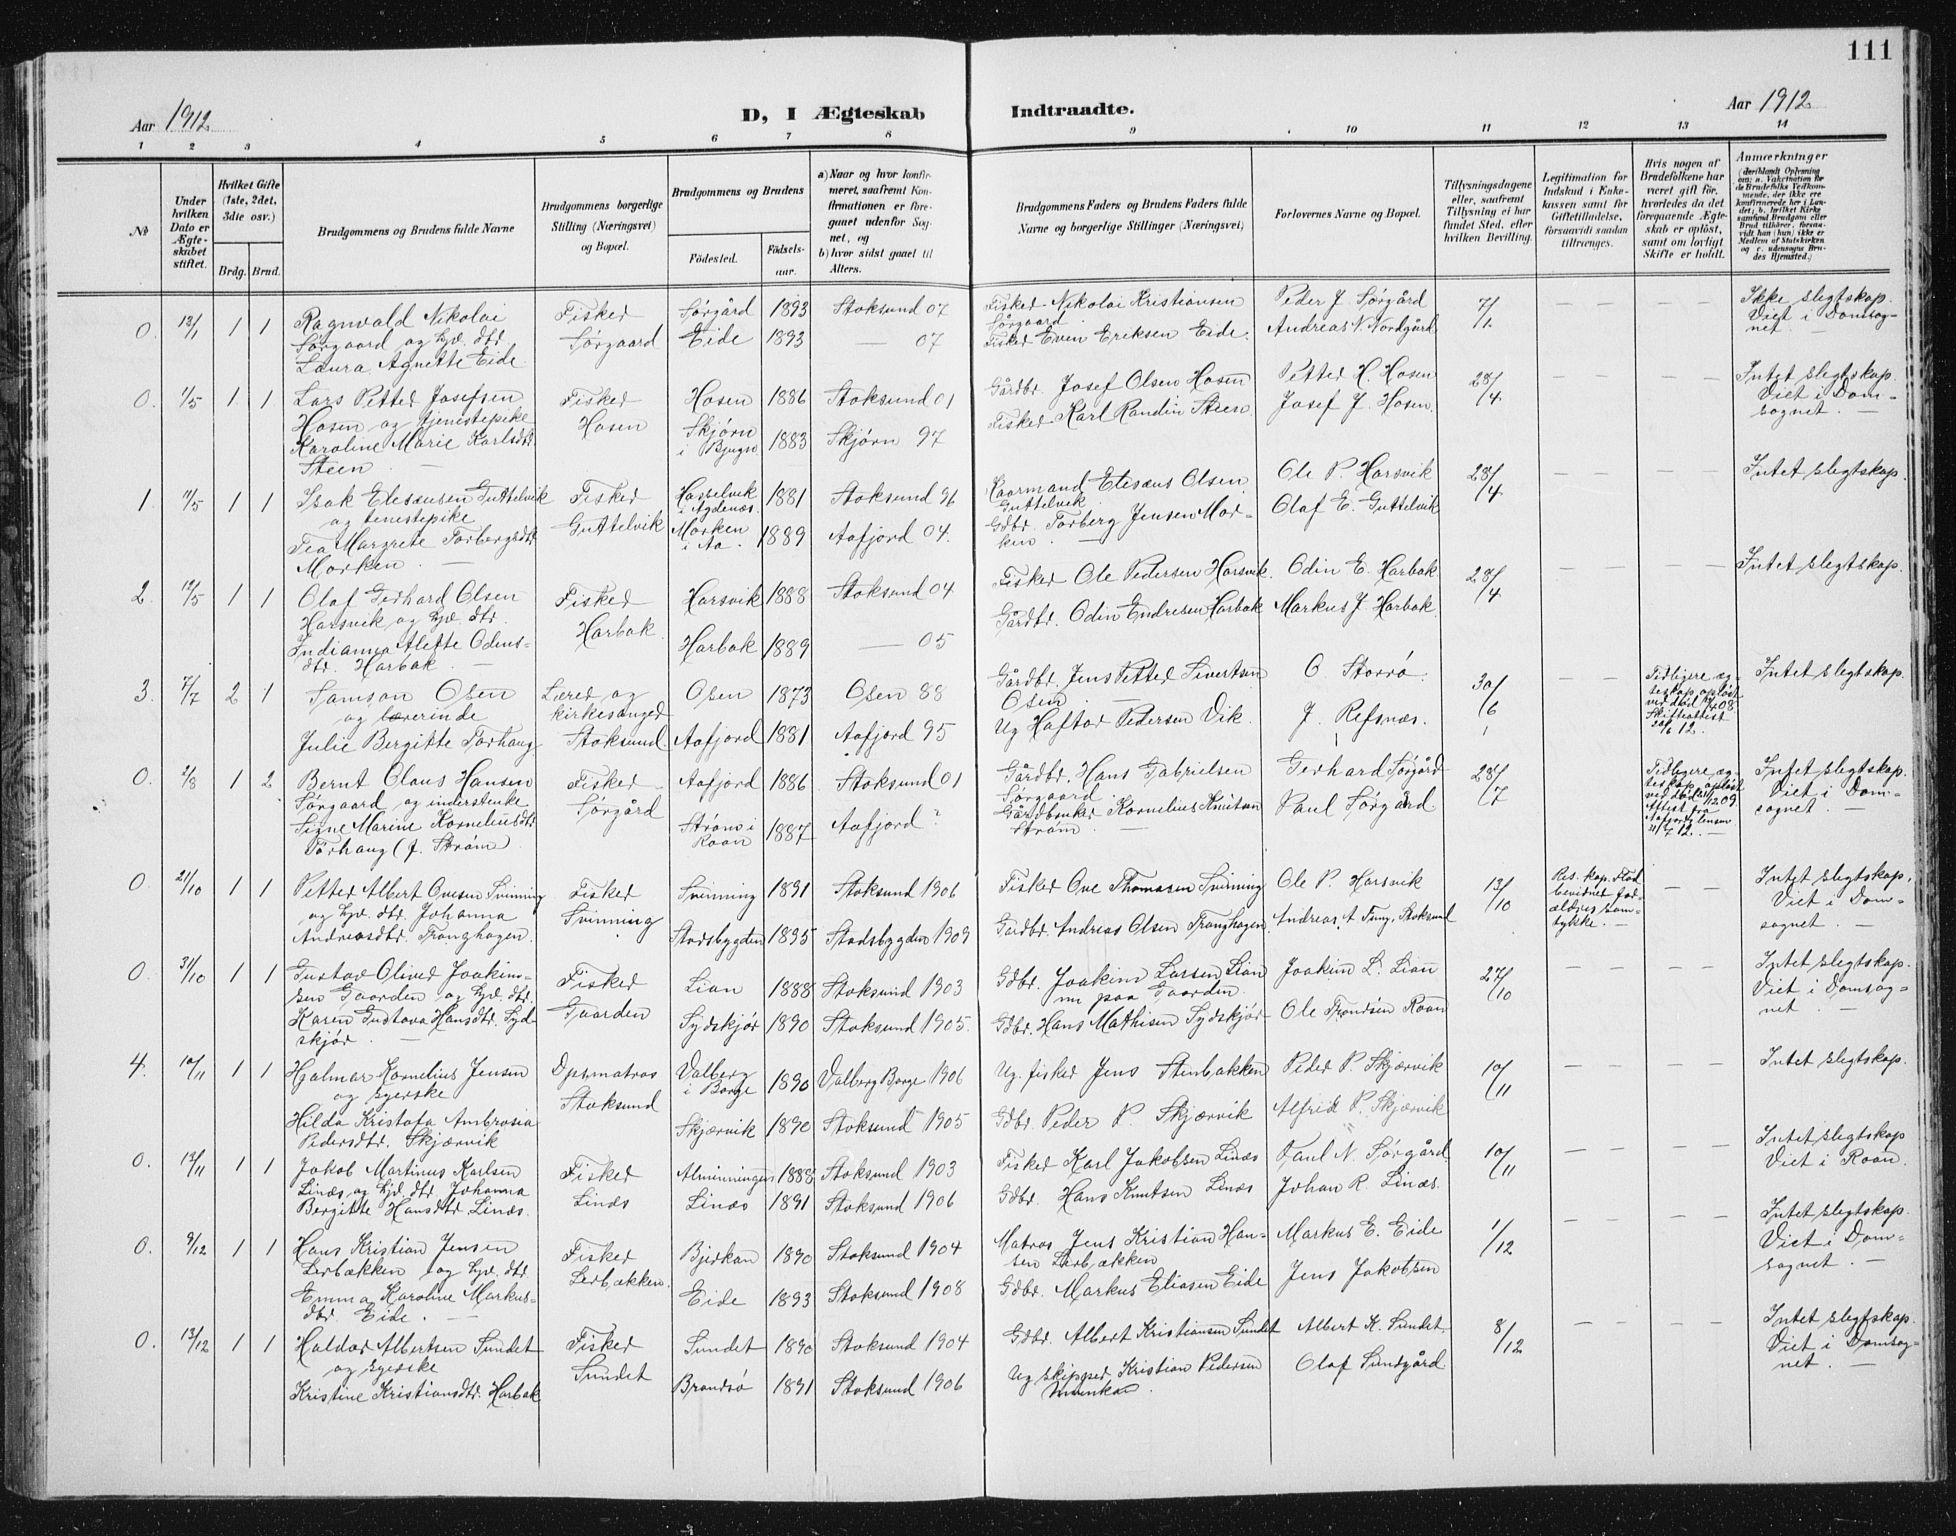 111
Aar 1912
D, I Ægteskab Indtraadte.
Aar 1912
1 2 3 4 5 6 7 8 9 10 11 12 13 14
№
Under hvilken Dato er Ægteskabet stiftet.
Hvilket Gifte (1ste, 2det, 3die osv.)
Brdg. Brud.
Brudgommens og Brudens fulde Navne
Brudgommens borgerlige Stilling (Næringsvei) og Bopæl.
Brudgommens og Brudens
Fødested. Fødselsaar.
a) Naar og hvor konfirmeret, saafremt Konfirmationen er foregaaet udenfor Sognet, og
b) hvor sidst gaaet til Alters.
Brudgommens Faders og Brudens Faders fulde Navne og borgerlige Stillinger (Næringsvei)
Forlovernes Navne og Bopæl.
Tillysningsdagene eller, saafremt Tillysning ei har fundet Sted, efter hvilken Bevilling.
Legitimation for Indskud i Enkekassen samt for Giftetilladelse, forsaavidt saadan tiltrænges.
Hvis nogen af Brudefolkene har været gift før, hvorledes da det foregaaende Ægteskab er opløst, samt om lovligt Skifte er holdt.
Anmærkninger
(deriblandt Oplysning om: a. Vaksination for de Brudefolks Vedkommende, der ikke ere konfirmerede her i Landet; b. hvilket Kirkesamfund Brudgom eller Brud tilhører, forsaavidt han (hun) ikke er Medlem af Statskirken og c. udensogns Brudes Hjemsted.)
0. 13/1 1 1 Ragnvald Nikolai Fisker Sørgård 1893 Stoksund 07 Fisker Nikolai Kristiansen Peder J. Sørgård 7/1 — — — — Ikke slegtskap.
Sørgaard og hjv. dtr. Sørgaard Eide 1893 — 07 Sørgaard Andreas N. Nordgård Viet i Domsog-
Laura Agnette Eide Fisker Even Eriksen Eide. net —
0. 1/5 1 1 Lars Petter Josefsen Fisker Hosen 1886 Stoksund 01 Gårdbr. Josef Olsen Hosen Petter H. Hosen 28/4 — — — — Intet slegtskap.
Hosen og tjenestepike Hosen Skjørn 1883 Skjørn 97 Fisker Karl Randin Steen Josef J. Hosen. Viet i Dom-
Karoline Marie Karlsdtr. i Bjugn sognet. —
Steen —
1. 11/5 1 1 Isak Elesæusen Guttelvik Fisker Hasselvik 1881 Stoksund 96 Kaarmand Elesæus Olsen Ole P. Harsvik 28/4 — — — — Intet slegtskap.
og tenestepike Guttelvik i Agdenæs Guttelvik Olaf E. Guttelvik
Tea Margrete Torbergsdtr. Morken 1889 Aafjord 04. Gdbr. Torberg Jensen Mor-
Morken — i Aa. ken. —
2. 12/5 1 1 Olaf Gerhard Olsen Fisker Harsvik 1888 Stoksund 04 Fisker Ole Pedersen Harsvik. Odin E. Harbak 28/4 — — — — Intet slegtskap.
Harsvik og hjv. dtr. Harbak. Harbak 1889 — 05 Gårdbr. Odin Endresen Harbak Markus J. Harbak
Indianna Alette Odins-
dtr. Harbak. —
3. 7/7 2 1 Samson Osen Lærer og Osen 1873 Osen 88 Gårdbr. Jens Petter Sivertsen O Storrø 30/6 — — Tidligere æg- Intet slegtskap.
og lærerinde kirkesanger Osen — J. Refsnæs. teskap opløst
Julie Bergitte Torhaug Stoksund Aafjord 1881 Aafjord 95 Ug Haftor Pedersen Vik. ved død 08.
Skifteattest
12.
0. 2/8 1 2 Bernt Olaus Hansen Fisker Aafjord 1886 Stoksund 01 Gårdbr. Hans Gabrielsen Gerhard Sørgård 28/7 — — Tidligere æg- Intet slegtskap.
Sørgaard og Sørgård Strøm i 1887 Aafjord ? Sørgaard Paul Sørgård teskap opløst Viet i Dom-
Signe Marine Kornelius dtr. Roan Gårdbruker Kornelius Knutsen ved død 09. sognet. —
Torhaug (f. Strøm) Strøm — Attest fra
Aafjords
12. —
0. 21/10 1 1 Petter Albert Ovesen Svinning Fisker Svinning 1891 Stoksund 1906 Fisker Ove Thomasen Svinning Ole P. Harsvik 13/10 — — Intet slegtskap.
og hjv. dtr. Johanna Svinning Stadsbygden 1895 Stadsbygden 1909 Gårdbr. Andreas Olsen Tranghagen. Andreas A Tung, Stoksund Viet i Dom-
Andreasdtr. Tranghagen. tykke. — sognet. —
0. 31/10 1 1 Gustav Oliver Joakim- Fisker Lian 1888 Stoksund 1903 Gdbr. Joakim Larsen Lian Joakim L. Lian 27/10 — — — — Intet slegtskap.
sen Gaarden og hjv. dtr. Gaarden Sydskjør 1890 Stoksund 1905. nu paa Gaarden. Ole Trondsen Roan Viet i Domsog-
Karen Gustava Hansdtr. Syd- Gdbr. Hans Mathisen Sydskjør net —
skjør. —
4. 10/11 1 1 Hjalmar Kornelius Jensen Dpsmatros Valberg 1890 Valberg Borge 1906 Ug. fisker Jens Stenbakken Peder P. Skjærvik 10/11 — — — — Intet slegtskap.
og syerske Stoksund i Borge
Hilda Kristofa Ambrosia Skjærvik 1890 Stoksund 1905 Gdbr. Peder P. Skjærvik Alfrid P. Skjærvik
Pedersdtr. Skjærvik
0. 13/11 1 1 Jakob Martinus Karlsen Fisker Almenningen 1888 Stoksund 1903 Fisker Karl Jakobsen Linæs Paul N. Sørgård 10/11 — — — — Intet slegtskap
Linæs og hjv. dtr. Johanna Linæs Linæs 1891 Stoksund 1906 Gdbr. Hans Knutsen Linæs Johan R. Linæs. Viet i Roan.
Bergitte Hansdtr. Linæs.
0. 9/12 1 1 Hans Kristian Jensen Fisker Bjørkan 1890 Stoksund 1904 Matros Jens Kristian Han- Markus E. Eide 1/12 — — — — Intet slegtskap.
Lerbækken og hjv. dtr. Lerbækken. Eide 1893 Stoksund 1908 sen Lerbækken Jens Jakobsen Viet i Dom-
Emma Karoline Markus- Gdbr. Markus Eliasen Eide sognet. —
dtr. Eide. —
0. 13/12 1 1 Haldor Albertsen Sundet Fisker Sundet 1890 Stoksund 1904 Gdbr. Albert Kristiansen Sundet Albert K. Sundet. 8/12 — — — — Intet slegtskap.
og syerske Sundet Brandsø 1891 Stoksund 1906 Ug skipper Kristian Pedersen Olaf Sundgård Viet i Domsog-
Kristine Kristiansdtr. Harbak net. —